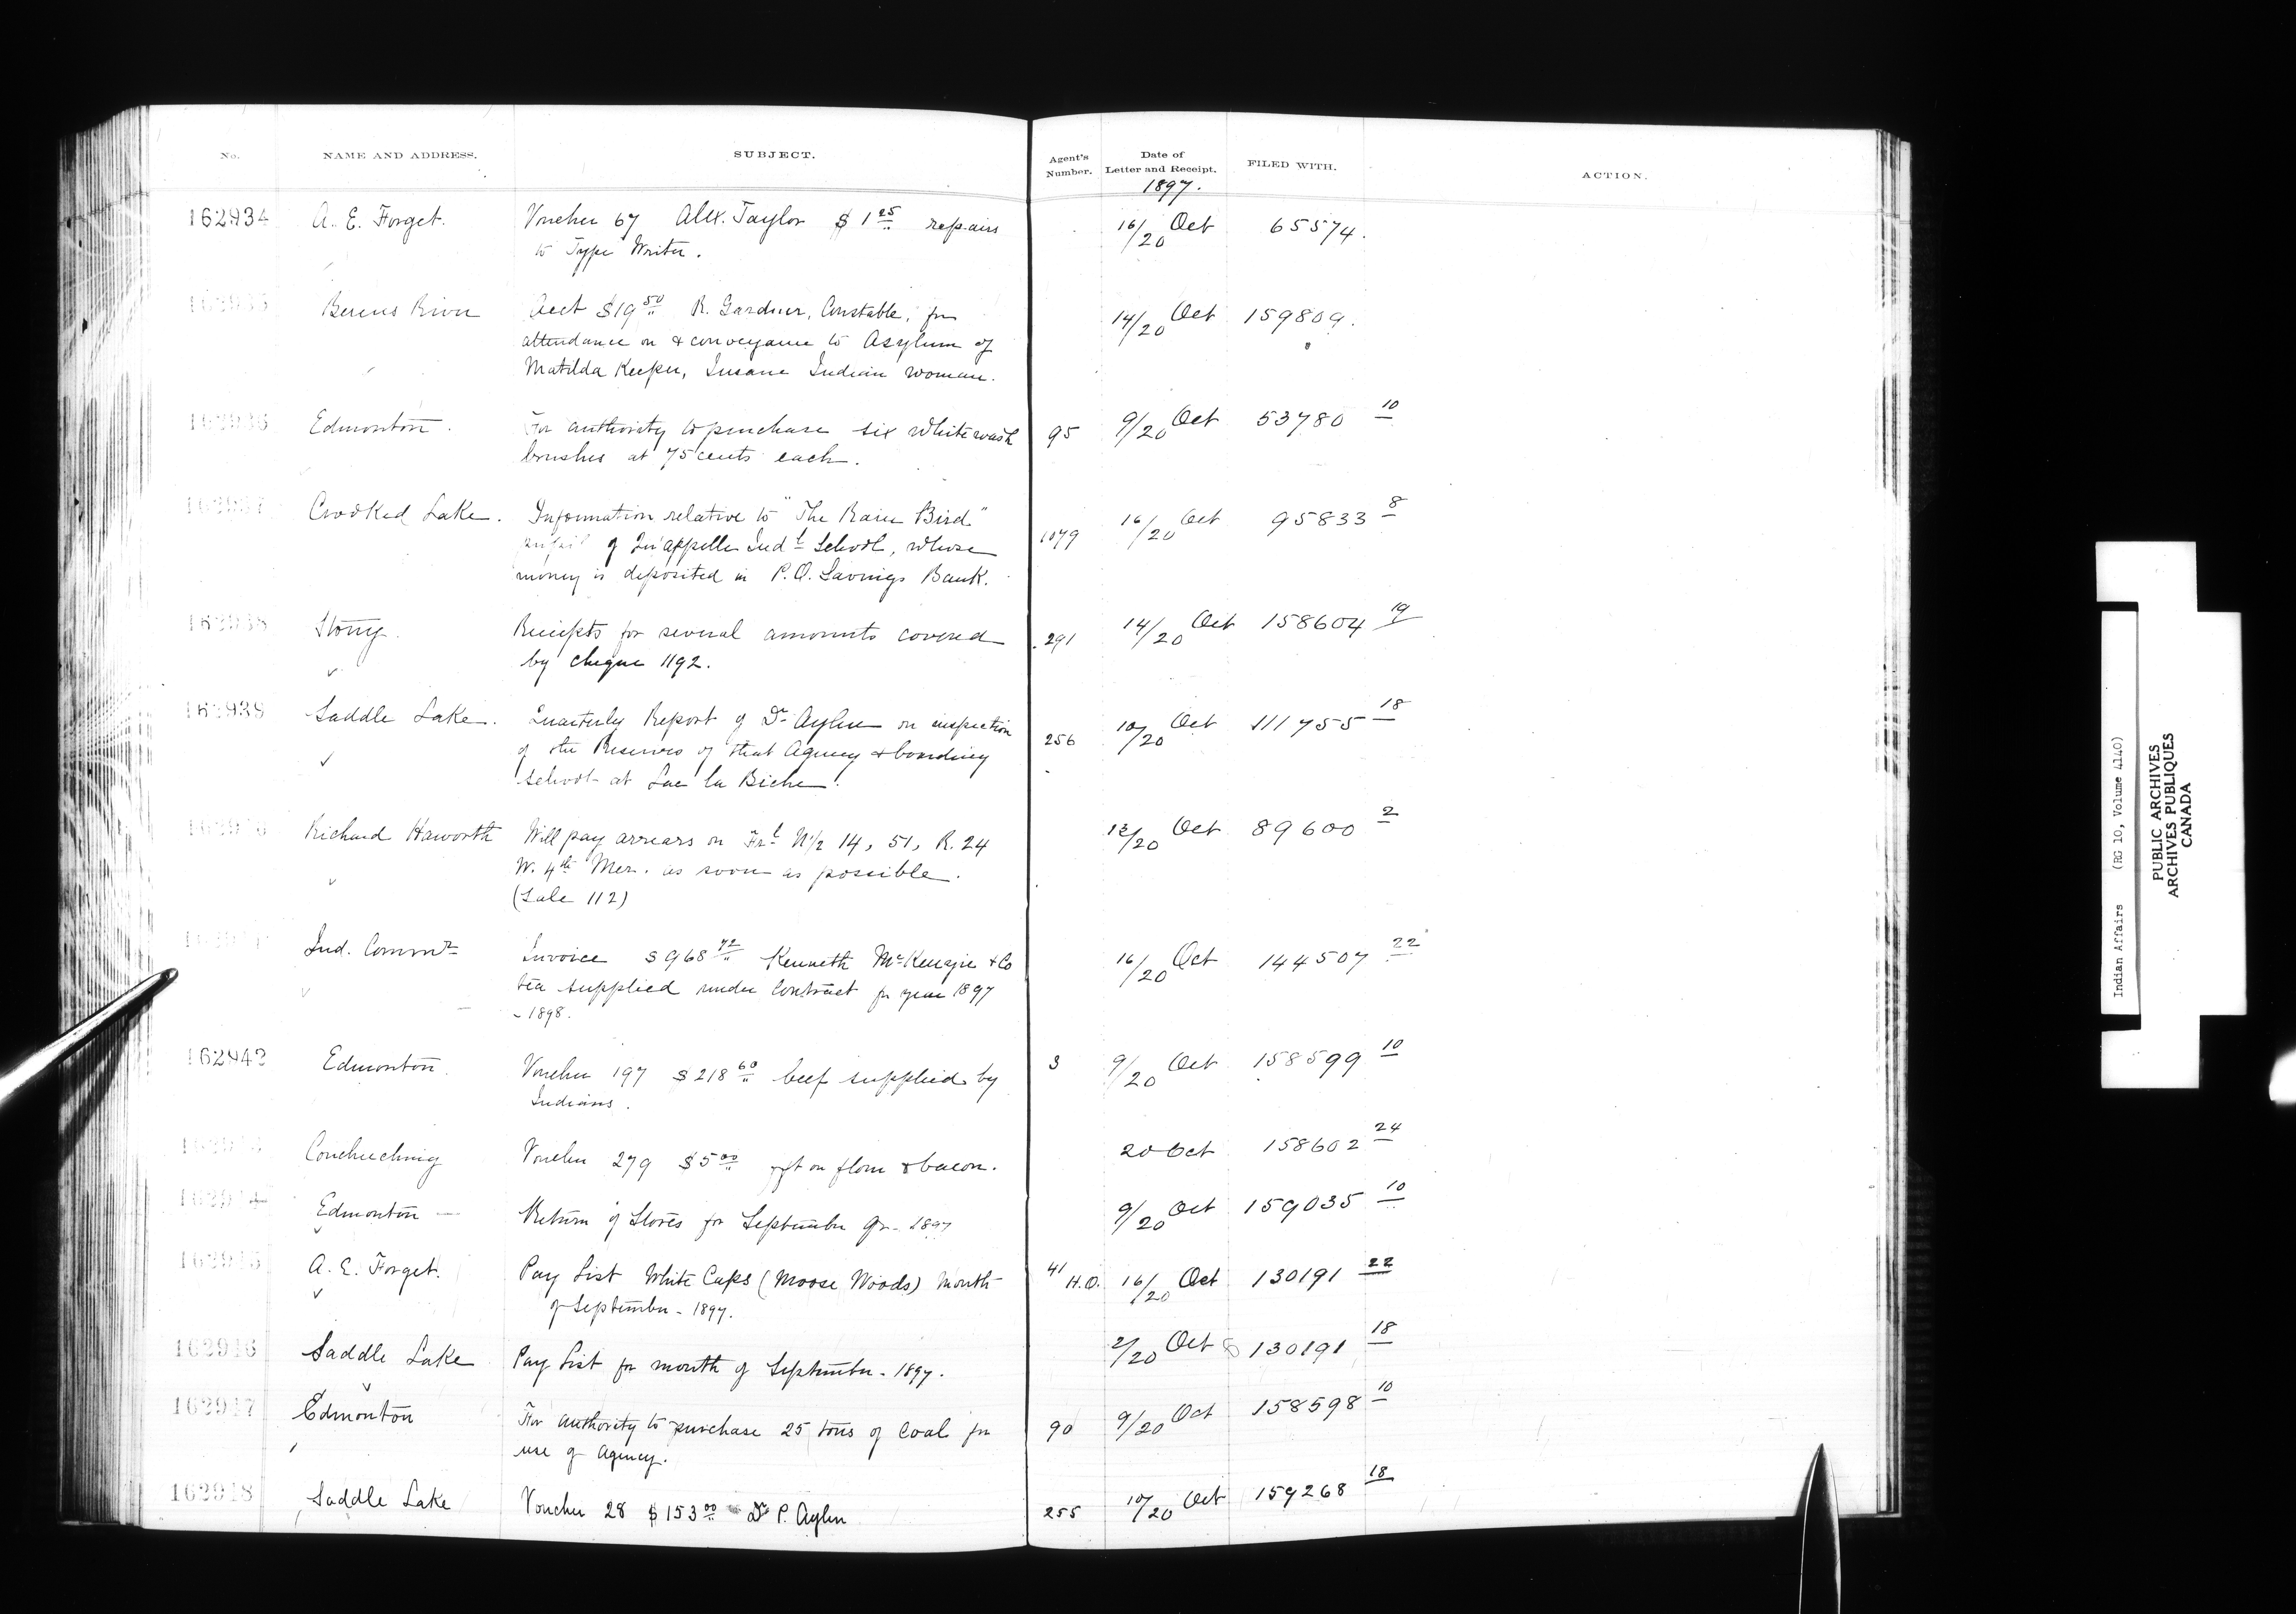 No. NAME AND ADDRESS. SUBJECT. Agent's Number. Date of Letter and Receipt. FILED WITH. ACTION.
1897.
162934 A. E. Forget. Voucher 67 Alex. Taylor $1 25 repairs 16/20 Oct 65574.
to Type Writer.
162935 Berens River Acct $19 50 R. Gardner, Constable, for 14/20 Oct 159809.
attendance on & conveyance to Asylum of
Matilda Keeper, Insane Indian woman.
162936 Edmonton. For authority to purchase six whitewash 95 9/20 Oct 53780 10
brushes at 75 cents each.
162937 Crooked Lake. Information relative to "The Rain Bird" 1079 16/20 Oct 95833 8
pupil of Qu'appelle Indl School, whose
money is deposited in P.O. Savings Bank.
162938 Stony. Receipts for several amounts covered 291 14/20 Oct 158604 19
by cheque 1192.
162939 Saddle Lake. Quarterly Report of Dr Aylen on inspection 256 10/20 Oct 111755 18
of the Reserves of that Agency & boarding
school at Lac la Biche.
162940 Richard Haworth Will pay arrears on Frl N1/2 14, 51, R. 24 13/20 Oct 89600 2
W. 4th Mer. as soon as possible.
(Sale 112)
Ind. Commr Invoice $968 72 Kenneth McKenzie & Co 16/20 Oct 144507 22
tea supplied under contract for year 1897
- 1898.
162942 Edmonton. Voucher 197 $218 60 beef supplied by 3 9/20 Oct 158599 10
Indians.
Couchiching Voucher 279 $5 00 frt on flour & bacon. 20 Oct 158602 24
162944 Edmonton Return of Stores for September qr- 1897 9/20 Oct 159035 10
162945 A. E. Forget. Pay List White Caps (Moose Woods) month 41 H.O. 16/20 Oct 130191 22
of September - 1897.
162946 Saddle Lake Pay List for month of September - 1897. 2/20 Oct 130191 18
162947 Edmonton For authority to purchase 25 tons of coal for 90 9/20 Oct 158598 10
use of agency.
162948 Saddle Lake Voucher 28 $153 00 Dr P. Aylen 255 10/20 Oct 159268 18
Indian Affairs (RG 10, Volume 4140)
PUBLIC ARCHIVES
ARCHIVES PUBLIQUES
CANADA